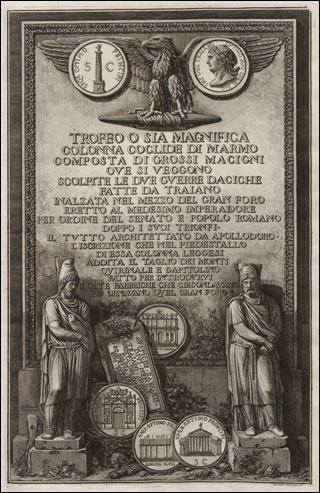 S C
TROFEO O SIA MAGNIFICA
COLONNA COCLIDE DI MARMO
COMPOSTA DI GROSSI MACIGNI
OVE SI VEGGONO
SCOLPITE LE DUE GUERRE DACICHE
FATTE DA TRAIANO
INALZATA NEL MEZZO DEL GRAN FORO
ERETTO AL MEDESIMO IMPERADORE
PER ORDINE DEL SENATO E POPOLO ROMANO
DOPPO I SUOI TRIONFI.
IL TUTTO ARCHITETTATO DA APOLLODORO.
L'ISCRIZIONE CHE NEL PIEDESTALLO
DI ESSA COLONNA LEGGESI
ADDITA IL TAGLIO DEI MONTI
QUIRINALE E CAPITOLINO
FATTO PER INTRODURVI
FABBRICHE CHE CIRCONDAVANO
ORNAVANO QUEL GRAN FORO
OPTIMO PRINCIPI
S C